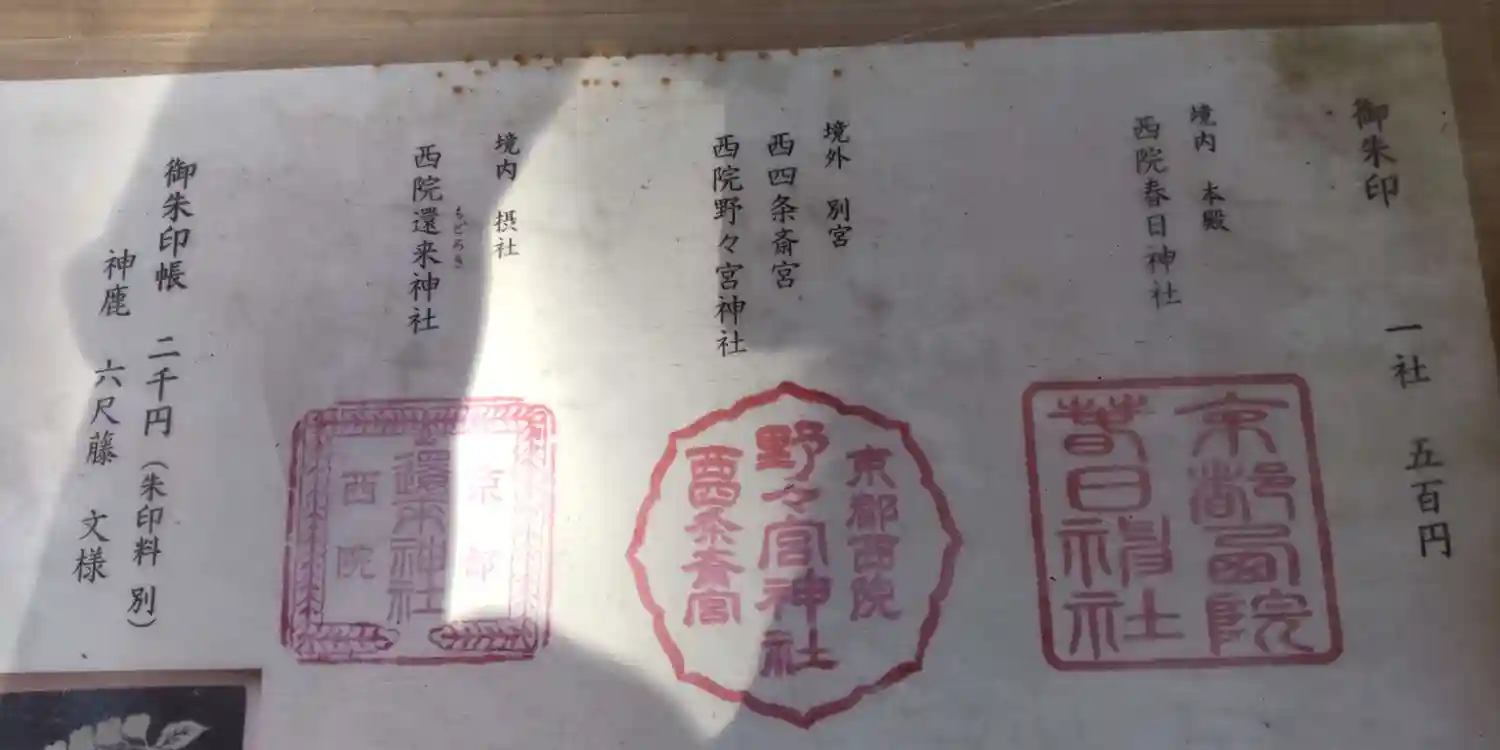 御朱印　一社　五百円
境内　本殿
西院春日神社
京都西院
春日神社
境外　別宮
西四条斎宮
西院野々宮神社
京都西院
野々宮神社
西四条斎宮
境内　摂社
西院還来神社
もどろき
京都
還来神社
西院
御朱印帳　二千円（朱印料　別）
神鹿　六尺藤　文様